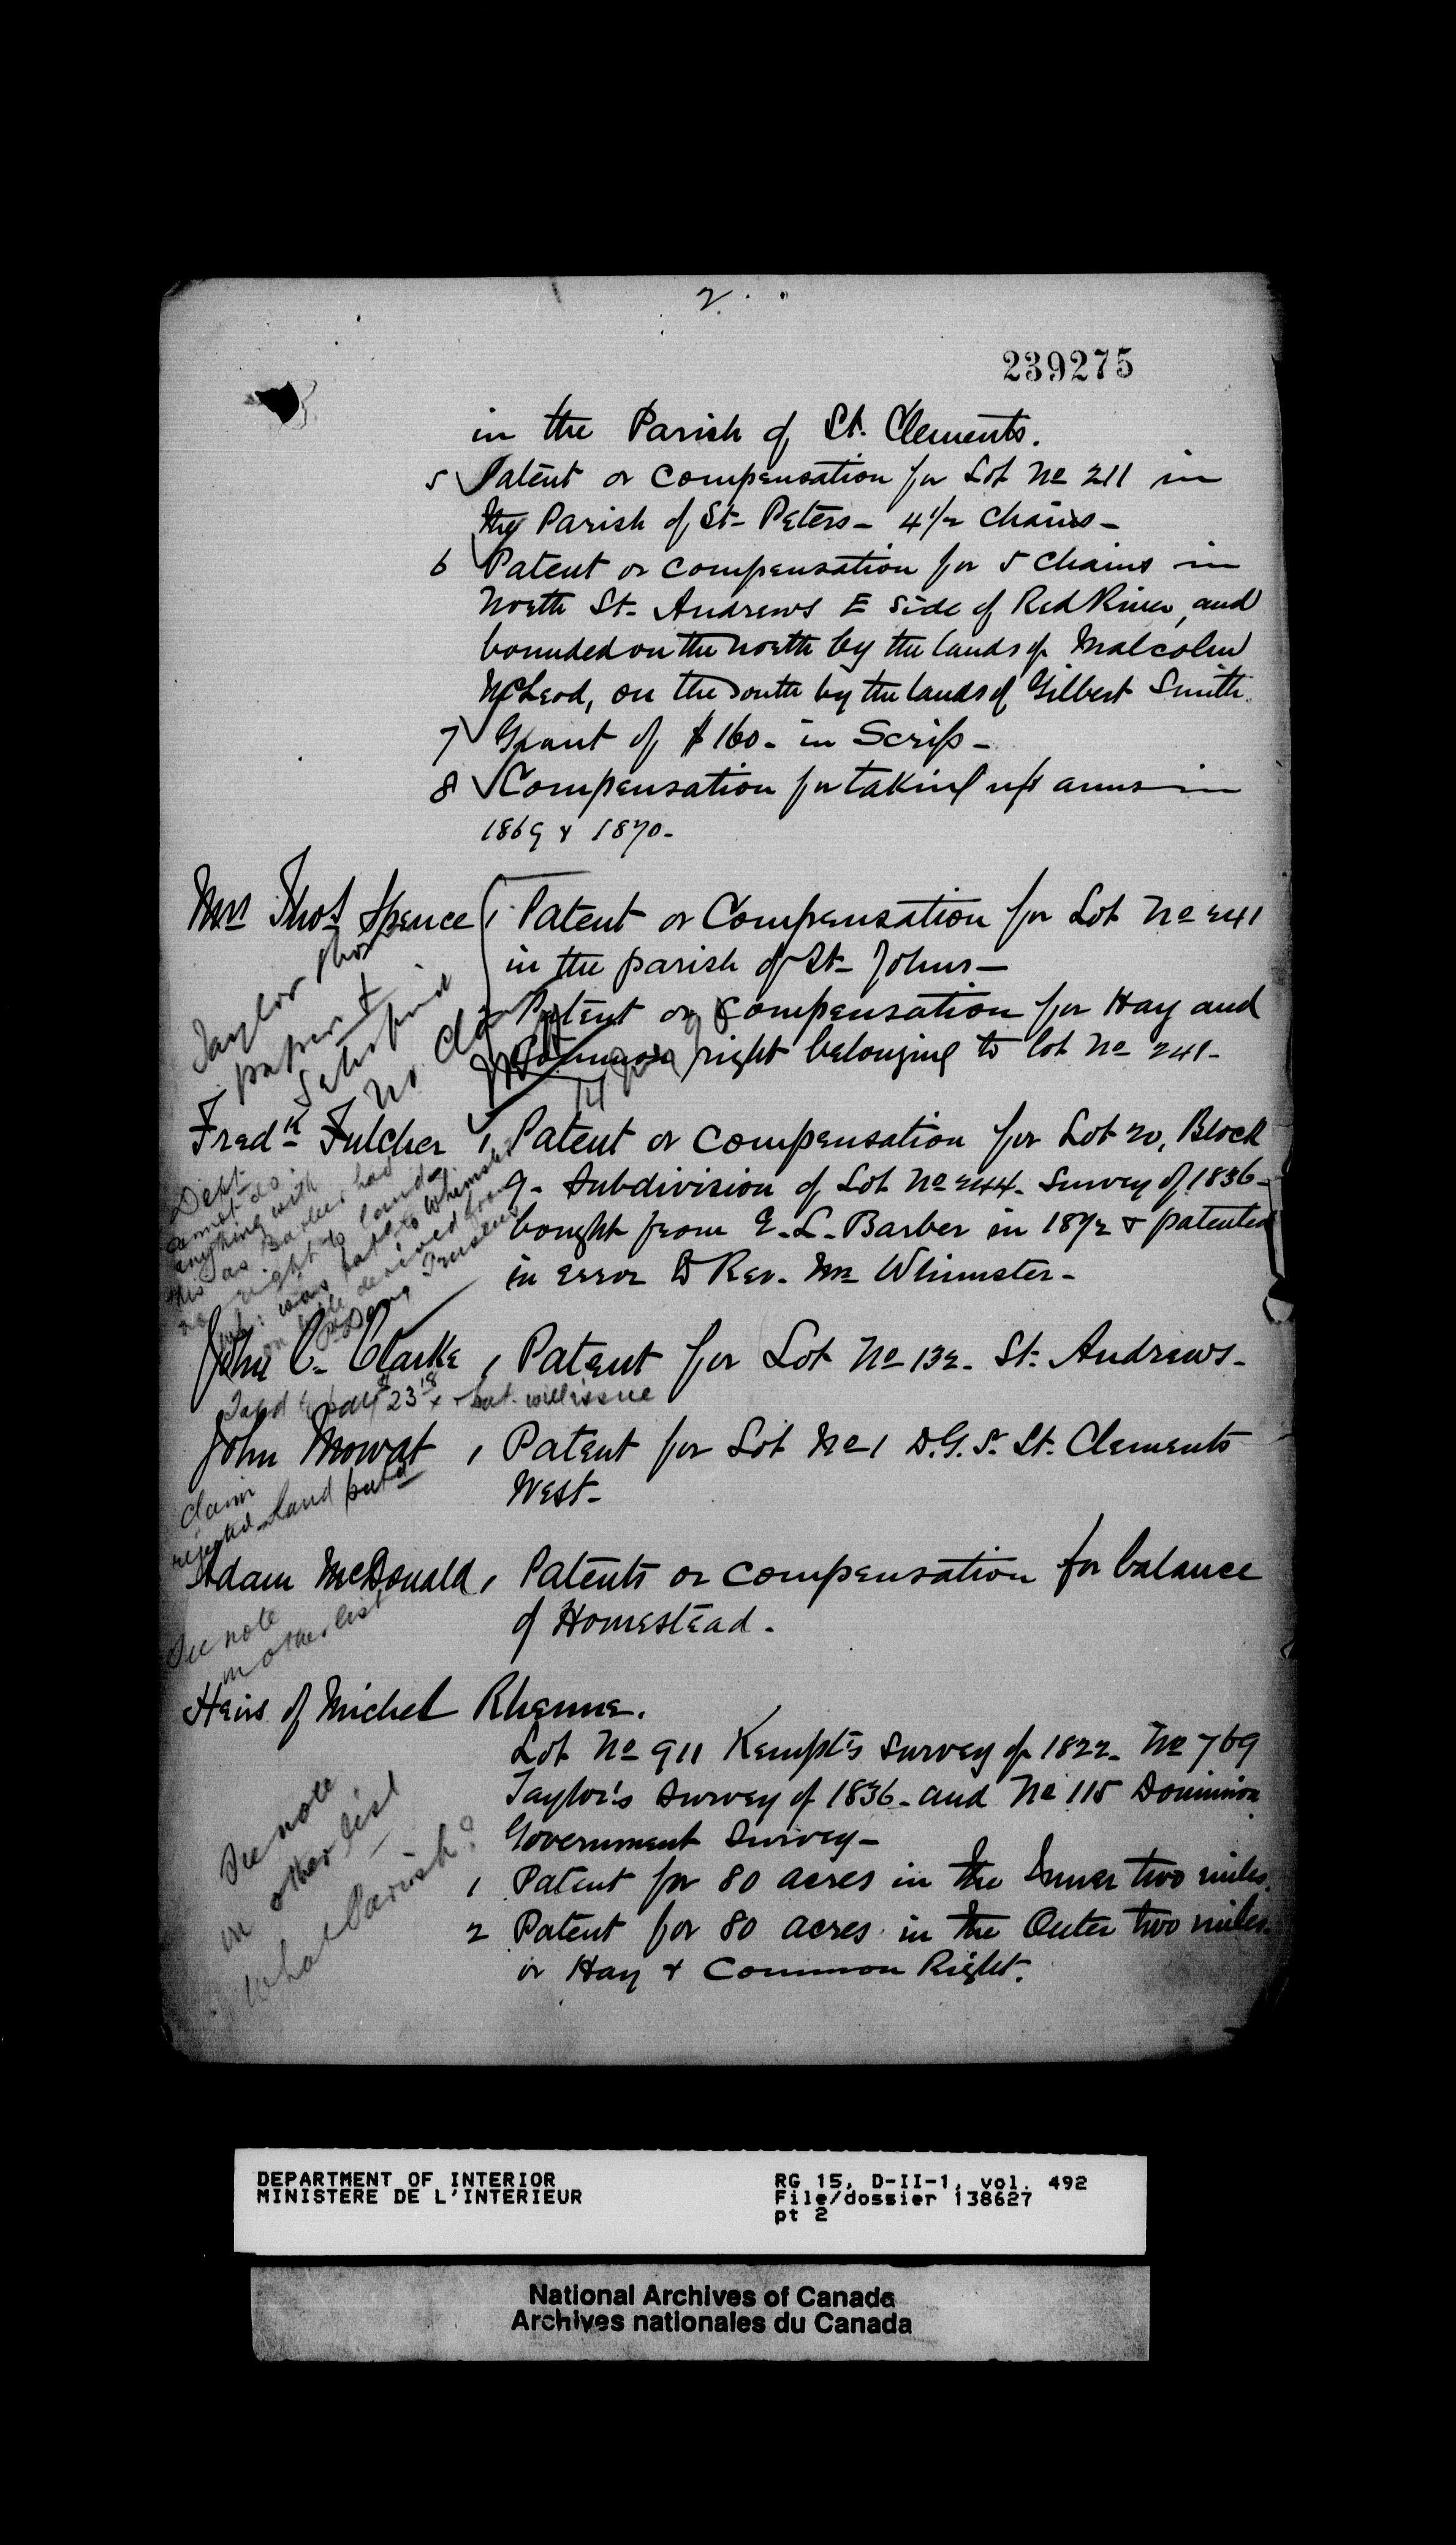 2.
239275
in the Parish of St. Clements.
5 Patent or Compensation for Lot No 211 in
the Parish of St- Peters- 4 1/2 Chains-
6 Patent or compensation for 5 Chains in
North St- Andrews E side of Red River, and
bounded on the north by the lands of Malcolm
McLeod, on the South by the lands of Gilbert Smith.
7 Grant of $160- in Scrip-
8 Compensation for taking up arms in
1869 & 1870-
Mrs Thos Spence 1 Patent or Compensation for Lot No 241
in the parish of St- Johns-
Patent or Compensation for Hay and
Common right belonging to lot No 241-
Taylor
paper &
no claim
Fredk Fulcher 1 Patent or Compensation for Lot 20, Block
9- Subdivision of Lot No 244- Survey of 1836-
bought from E. L. Barber in 1872 & patented
in error to Rev. Mr Whimster-
Dept
cannot do
anything with
this as Barber had
no right to land
was patd to Whimster
on title derived from
Trustees
John C. Clarke 1 Patent for Lot No 132- St- Andrews-
23 18 & pat. will issue
John Mowat 1 Patent for Lot No 1 D.G.S. St. Clements
West-
claim
rejected land patd
Adam McDonald 1 Patents or compensation for balance
of Homestead.
See note
on other list
Heirs of Michel Rhenne.
Lot No 911 Kempt's Survey of 1822- No 769
Taylor's Survey of 1836- and No 115 Dominion
Government Survey-
1 Patent for 80 acres in the Inner two miles.
2 Patent for 80 acres in the Outer two miles.
or Hay & Common Right.
See note
on other list
What Parish?
DEPARTMENT OF INTERIOR
MINISTERE DE L'INTERIEUR
RG 15, D-II-1, vol. 492
File/dossier 138627
pt 2
National Archives of Canada
Archives nationales du Canada